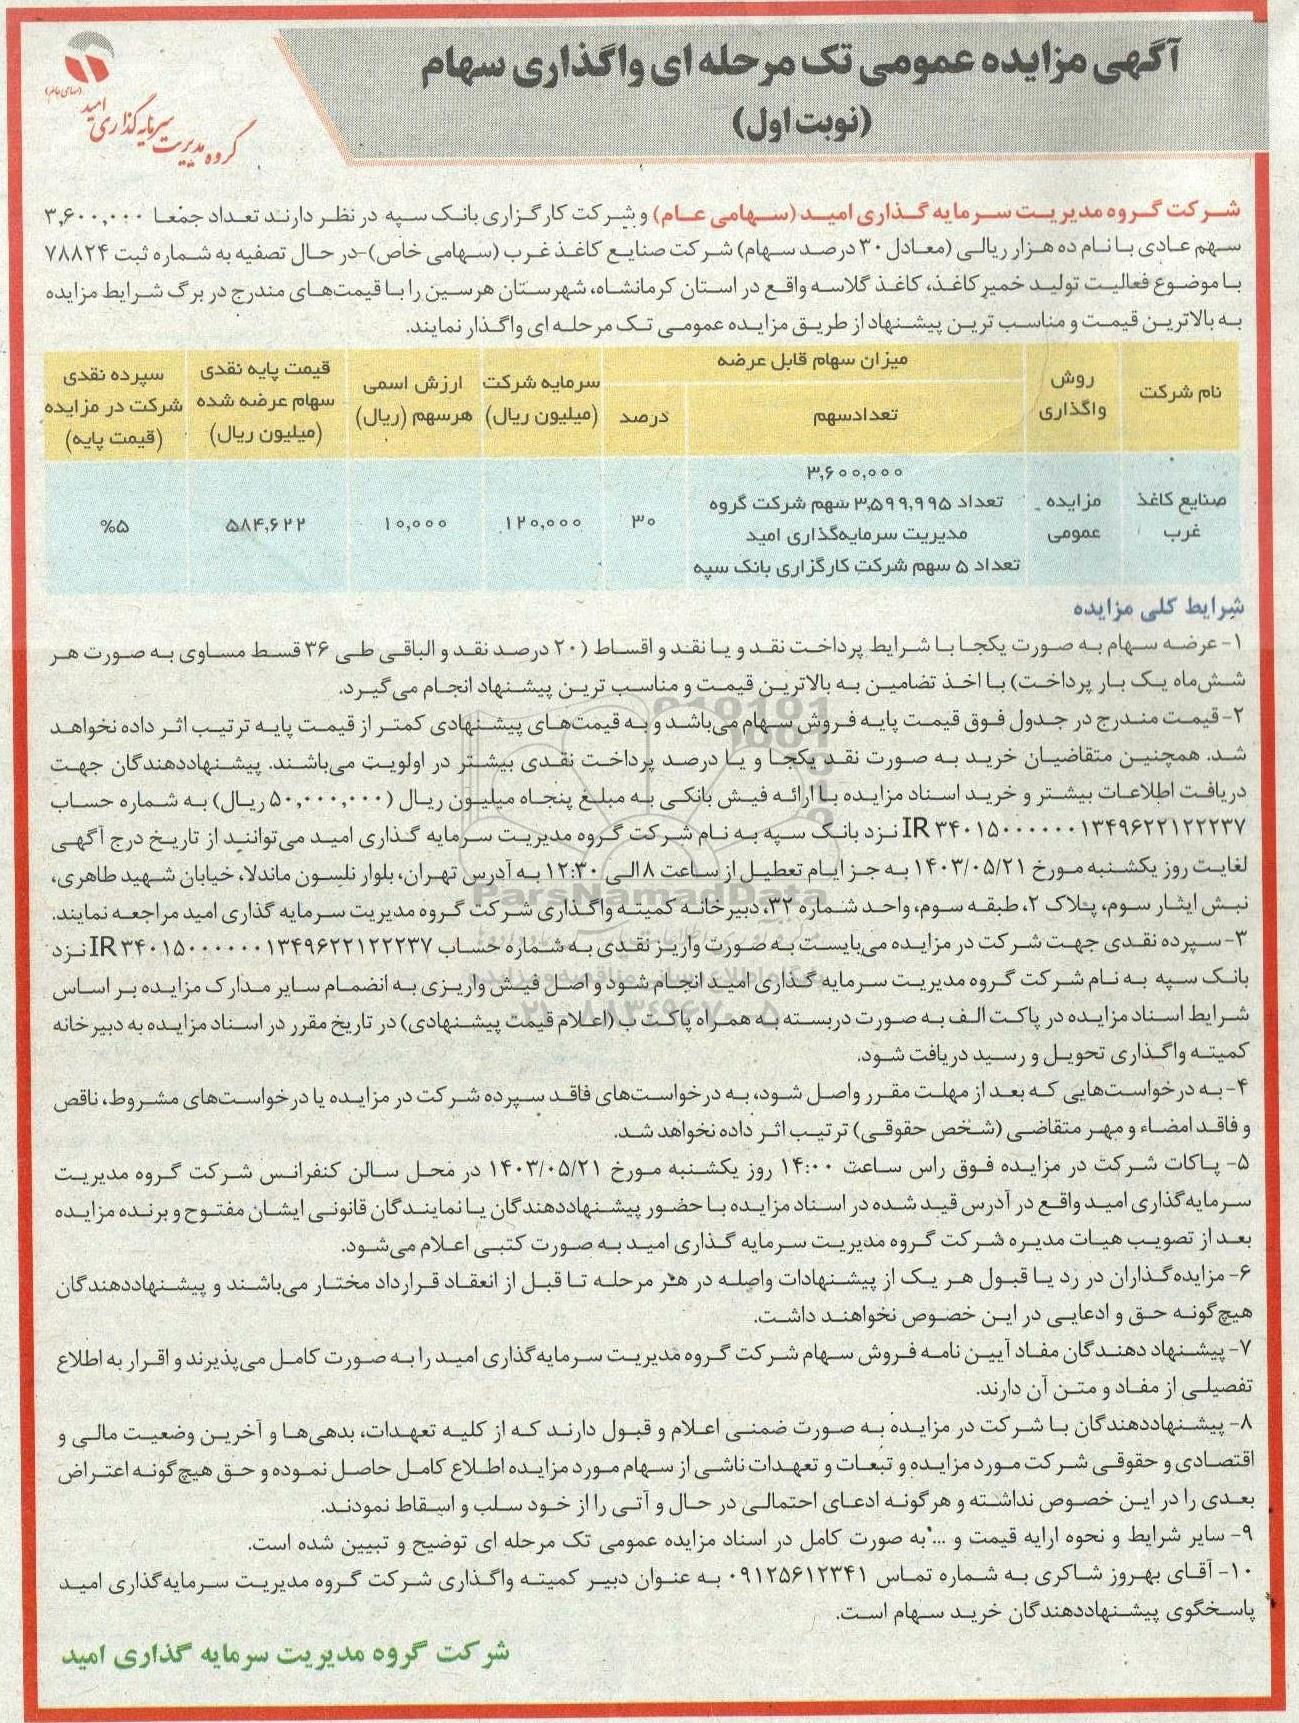 آگهی مزایده عمومی تک مرحله ای واگذاری سهام
(نوبت اول)
(سهامی عام)
گروه مدیریت سرمایه گذاری امید
شرکت گروه مدیریت سرمایه گذاری امید (سهامی عام) و شرکت کارگزاری بانک سپه در نظر دارند تعداد جمعا ۳,۶۰۰,۰۰۰
سهم عادی با نام ده هزار ریالی (معادل ۳۰ درصد سهام) شرکت صنایع کاغذ غرب (سهامی خاص)-در حال تصفیه به شماره ثبت ۷۸۸۲۴
با موضوع فعالیت تولید خمیر کاغذ، کاغذ گلاسه واقع در استان کرمانشاه، شهرستان هرسین را با قیمت‌های مندرج در برگ شرایط مزایده
به بالاترین قیمت و مناسب ترین پیشنهاد از طریق مزایده عمومی تک مرحله ای واگذار نمایند.
نام شرکت
روش واگذاری
میزان سهام قابل عرضه
تعدادسهم
درصد
سرمایه شرکت (میلیون ریال)
ارزش اسمی هرسهم (ریال)
قیمت پایه نقدی سهام عرضه شده (میلیون ریال)
سپرده نقدی شرکت در مزایده (قیمت پایه)
صنایع کاغذ غرب
مزایده عمومی
۳,۶۰۰,۰۰۰
تعداد ۳,۵۹۹,۹۹۵ سهم شرکت گروه
مدیریت سرمایه‌گذاری امید
تعداد ۵ سهم شرکت کارگزاری بانک سپه
۳۰
۱۲۰,۰۰۰
۱۰,۰۰۰
۵۸۴,۶۲۲
%۵
شرایط کلی مزایده
۱- عرضه سهام به صورت یکجا با شرایط پرداخت نقد و یا نقد و اقساط (۲۰ درصد نقد و الباقی طی ۳۶ قسط مساوی به صورت هر
شش‌ماه یک بار پرداخت) با اخذ تضامین به بالاترین قیمت و مناسب ترین پیشنهاد انجام می‌گیرد.
۲- قیمت مندرج در جدول فوق قیمت پایه فروش سهام می‌باشد و به قیمت‌های پیشنهادی کمتر از قیمت پایه ترتیب اثر داده نخواهد
شد. همچنین متقاضیان خرید به صورت نقد یکجا و یا درصد پرداخت نقدی بیشتر در اولویت می‌باشند. پیشنهاددهندگان جهت
دریافت اطلاعات بیشتر و خرید اسناد مزایده با ارائه فیش بانکی به مبلغ پنجاه میلیون ریال (۵۰,۰۰۰,۰۰۰ ریال) به شماره حساب
IR ۳۴۰۱۵۰۰۰۰۰۰۱۳۴۹۶۲۲۱۲۲۲۳۷ نزد بانک سپه به نام شرکت گروه مدیریت سرمایه گذاری امید می‌توانند از تاریخ درج آگهی
لغایت روز یکشنبه مورخ ۱۴۰۳/۰۵/۲۱ به جز ایام تعطیل از ساعت ۸ الی ۱۲:۳۰ به آدرس تهران، بلوار نلسون ماندلا، خیابان شهید طاهری،
نبش ایثار سوم، پلاک ۲، طبقه سوم، واحد شماره ۳۲، دبیرخانه کمیته واگذاری شرکت گروه مدیریت سرمایه گذاری امید مراجعه نمایند.
۳- سپرده نقدی جهت شرکت در مزایده می‌بایست به صورت واریز نقدی به شماره حساب IR ۳۴۰۱۵۰۰۰۰۰۰۱۳۴۹۶۲۲۱۲۲۲۳۷ نزد
بانک سپه به نام شرکت گروه مدیریت سرمایه گذاری امید انجام شود و اصل فیش واریزی به انضمام سایر مدارک مزایده بر اساس
شرایط اسناد مزایده در پاکت الف به صورت دربسته به همراه پاکت ب (اعلام قیمت پیشنهادی) در تاریخ مقرر در اسناد مزایده به دبیرخانه
کمیته واگذاری تحویل و رسید دریافت شود.
۴- به درخواست‌هایی که بعد از مهلت مقرر واصل شود، به درخواست‌های فاقد سپرده شرکت در مزایده یا درخواست‌های مشروط، ناقص
و فاقد امضاء و مهر متقاضی (شخص حقوقی) ترتیب اثر داده نخواهد شد.
۵- پاکات شرکت در مزایده فوق راس ساعت ۱۴:۰۰ روز یکشنبه مورخ ۱۴۰۳/۰۵/۲۱ در محل سالن کنفرانس شرکت گروه مدیریت
سرمایه‌گذاری امید واقع در آدرس قید شده در اسناد مزایده با حضور پیشنهاددهندگان یا نمایندگان قانونی ایشان مفتوح و برنده مزایده
بعد از تصویب هیات مدیره شرکت گروه مدیریت سرمایه گذاری امید به صورت کتبی اعلام می‌شود.
۶- مزایده‌گذاران در رد یا قبول هر یک از پیشنهادات واصله در هر مرحله تا قبل از انعقاد قرارداد مختار می‌باشند و پیشنهاددهندگان
هیچ‌گونه حق و ادعایی در این خصوص نخواهند داشت.
۷- پیشنهاد دهندگان مفاد آیین نامه فروش سهام شرکت گروه مدیریت سرمایه‌گذاری امید را به صورت کامل می‌پذیرند و اقرار به اطلاع
تفصیلی از مفاد و متن آن دارند.
۸- پیشنهاددهندگان با شرکت در مزایده به صورت ضمنی اعلام و قبول دارند که از کلیه تعهدات، بدهی‌ها و آخرین وضعیت مالی و
اقتصادی و حقوقی شرکت مورد مزایده و تبعات و تعهدات ناشی از سهام مورد مزایده اطلاع کامل حاصل نموده و حق هیچ‌گونه اعتراض
بعدی را در این خصوص نداشته و هرگونه ادعای احتمالی در حال و آتی را از خود سلب و اسقاط نمودند.
۹- سایر شرایط و نحوه ارایه قیمت و ... به صورت کامل در اسناد مزایده عمومی تک مرحله ای توضیح و تبیین شده است.
۱۰- آقای بهروز شاکری به شماره تماس ۰۹۱۲۵۶۱۲۳۴۱ به عنوان دبیر کمیته واگذاری شرکت گروه مدیریت سرمایه‌گذاری امید
پاسخگوی پیشنهاددهندگان خرید سهام است.
شرکت گروه مدیریت سرمایه گذاری امید
ParsNamadData